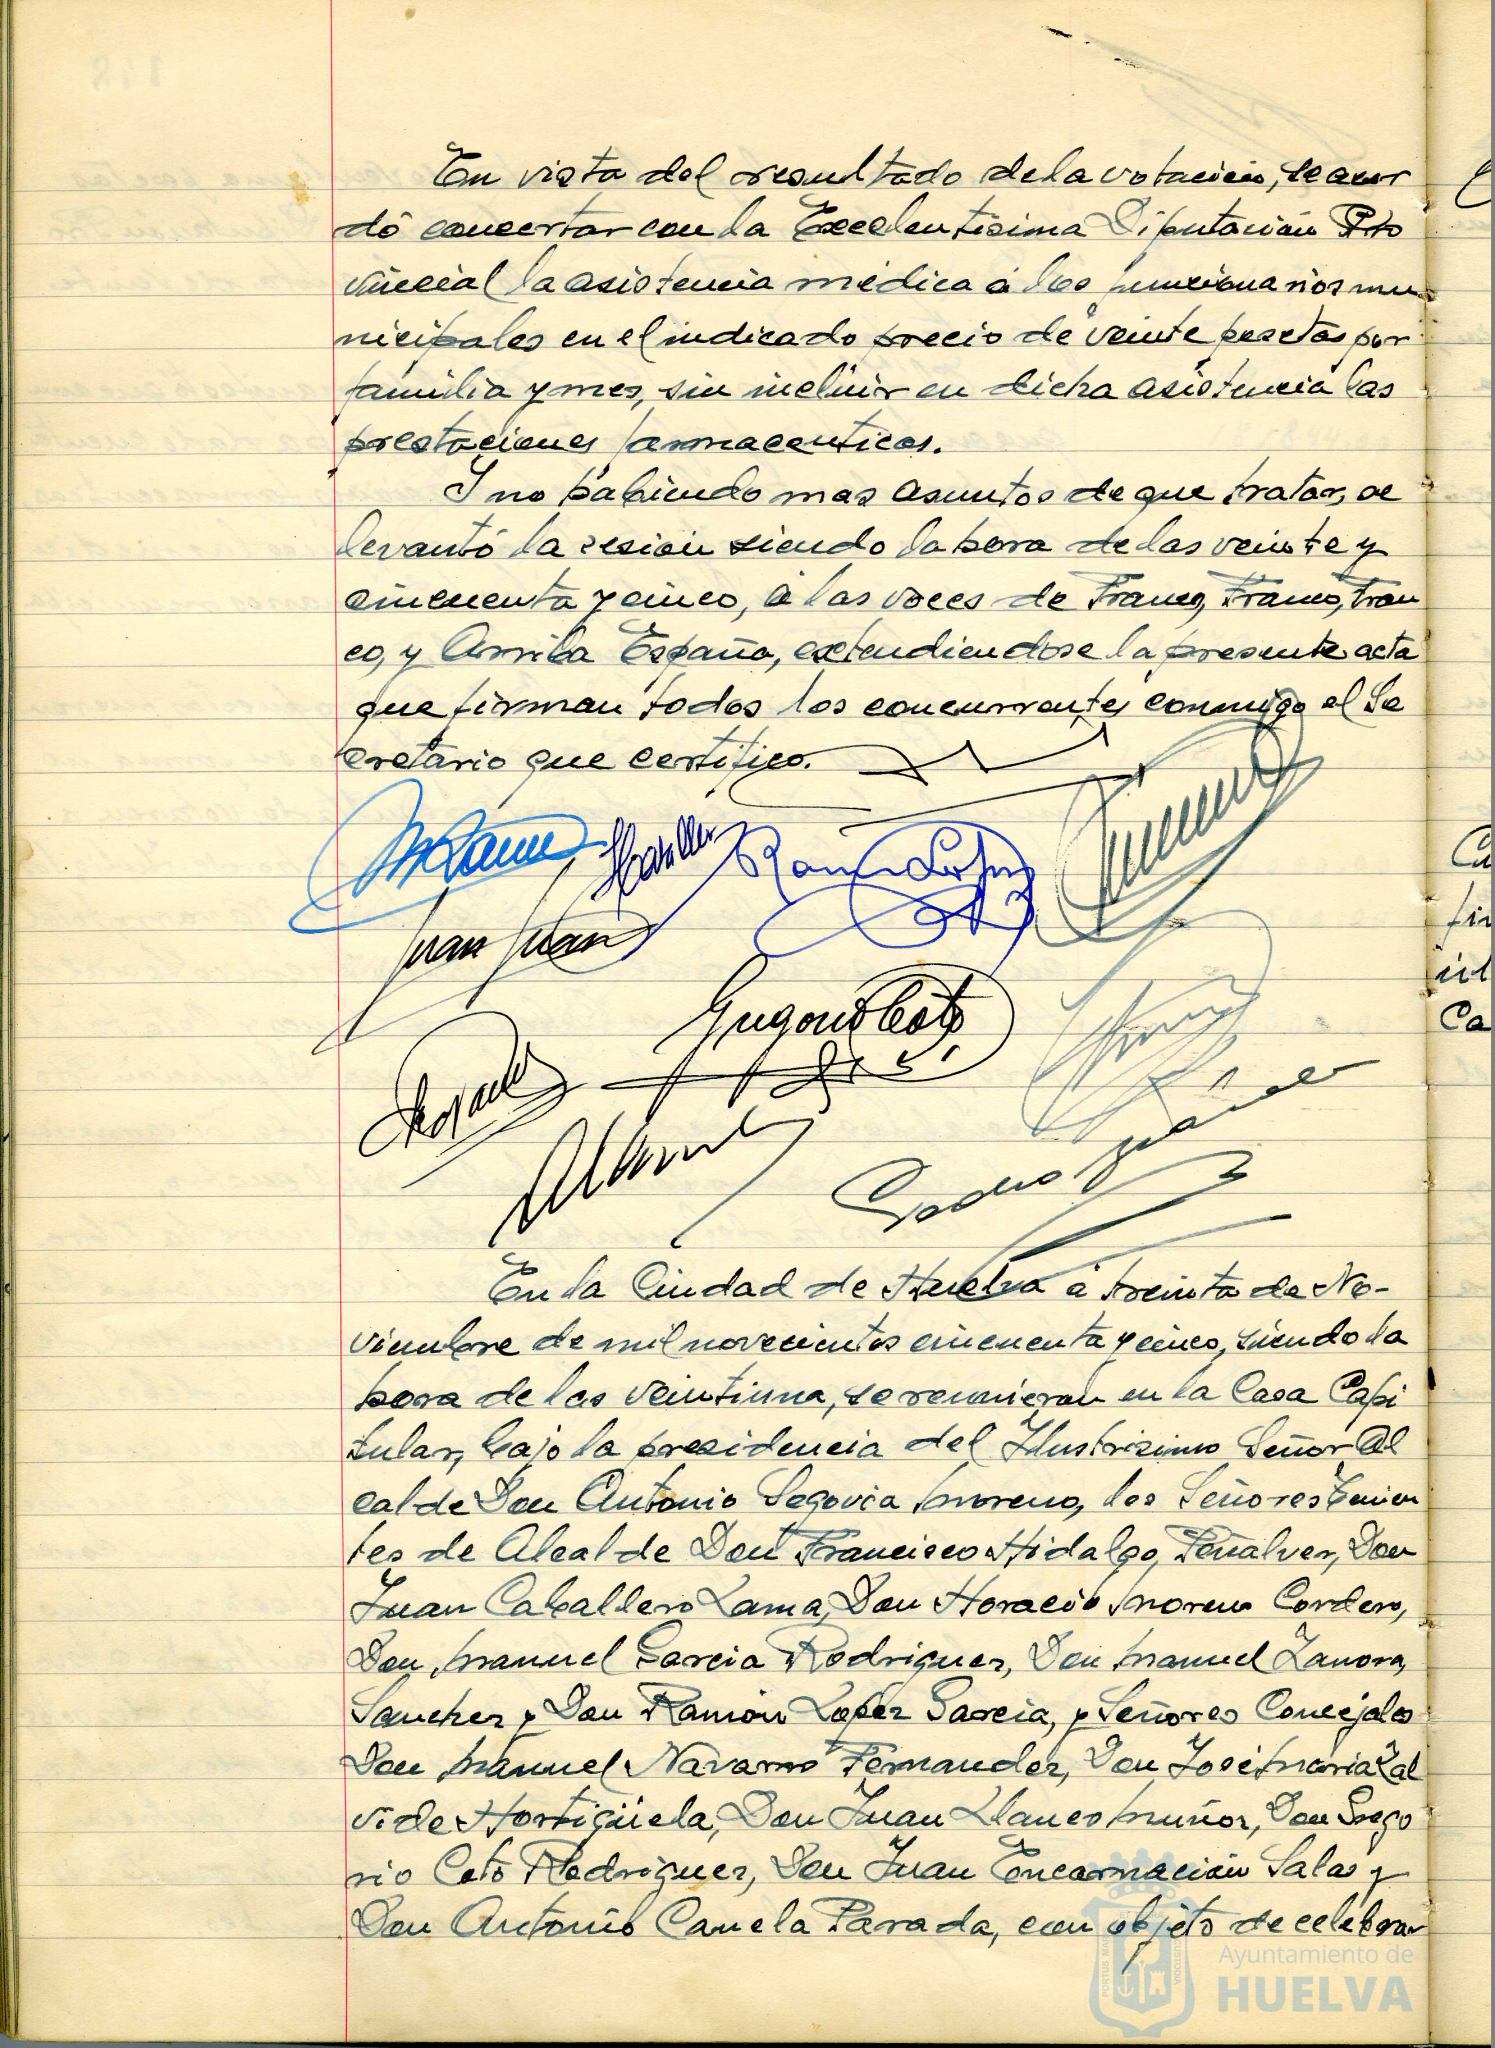 En vista del resultado de la votación, se acor
dó concertar con la Excelentísima Diputación Pro
vincial la asistencia médica á los funcionarios mu
nicipales en el indicado precio de veinte pesetas por
familia y mes, sin incluir en dicha asistencia las
prestaciones farmaceuticas.
Y no habiendo mas asuntos de que tratar, se
levantó la sesión siendo la hora de las veinte y
cincuenta y cinco, á las voces de Franco, Franco, Fran
co, y Arriba España, extendiendose la presente acta
que firman todos los concurrentes conmigo el Se
cretario que certifico.
Ramón López
Juan Juan
Gregorio Coto
Pedro
En la Ciudad de Huelva á treinta de No-
viembre de mil novecientos cincuenta y cinco, siendo la
hora de las veintiuna, se reunieron en la Casa Capi
tular, bajo la presidencia del Ilustrisimo Señor Al
calde Don Antonio Segovia Moreno, los Señores Tenien
tes de Alcalde Don Francisco Hidalgo Peñalver, Don
Juan Caballero Lama, Don Horacio Moreno Cordero,
Don Manuel Garcia Rodriguez, Don Manuel Zamora
Sanchez y Don Ramón López Garcia, y Señores Concejales
Don Manuel Navarro Fernandez, Don José Maria Zal
vide Hortigüela, Don Juan Llanes Muñoz, Don Grego
rio Coto Rodriguez, Don Juan Encarnación Salas y
Don Antonio Canela Parada, con objeto de celebrar
Ayuntamiento de
HUELVA